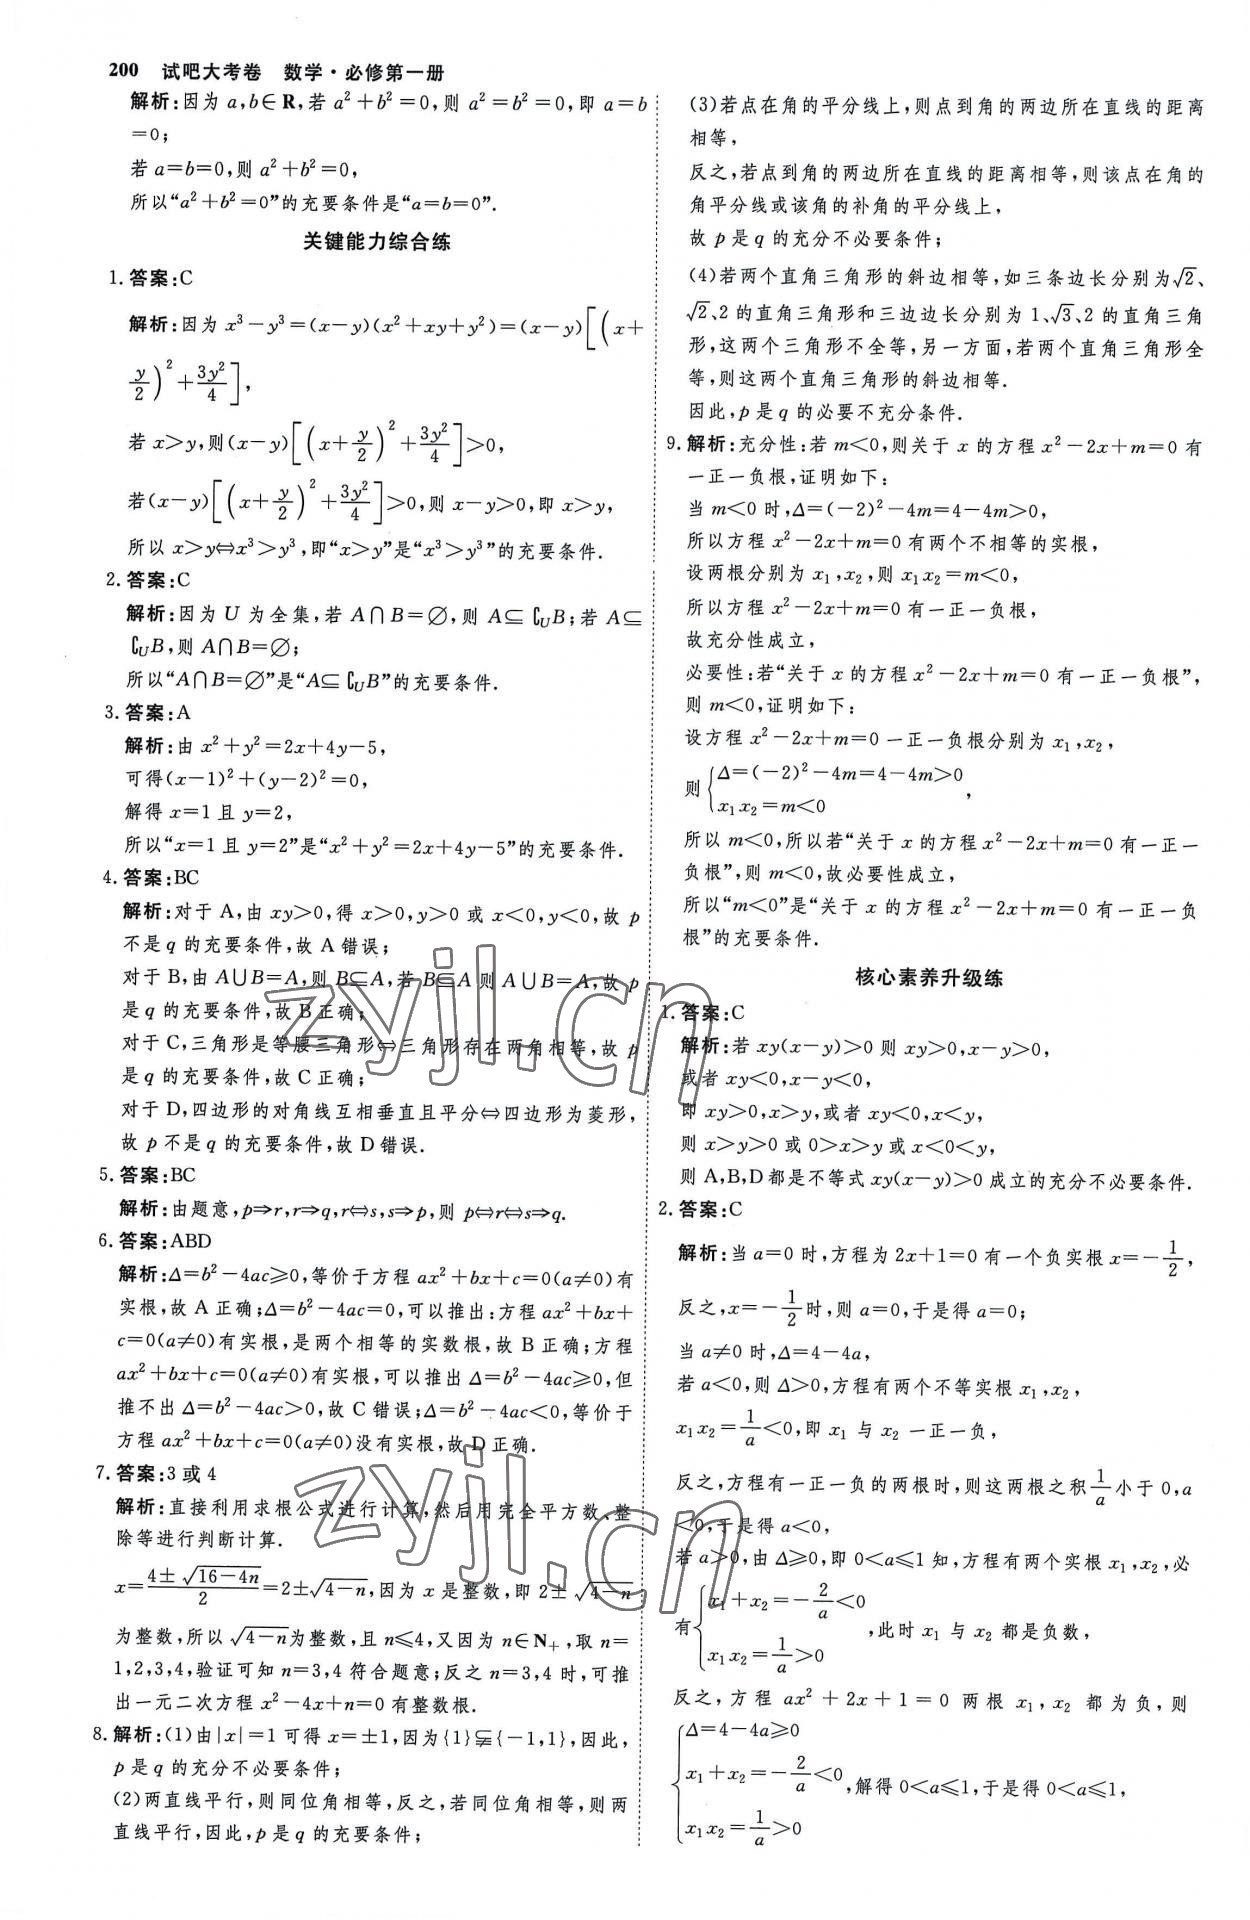 200 试吧大考卷 数学·必修第一册
解析:因为 a,b∈R,若 a²+b²=0,则 a²=b²=0,即 a=b
=0;
若 a=b=0,则 a²+b²=0,
所以“a²+b²=0”的充要条件是“a=b=0”.
关键能力综合练
1. 答案:C
解析:因为 x³-y³=(x-y)(x²+xy+y²)=(x-y)[(x+
y/2)²+3y²/4],
若 x>y,则(x-y)[(x+y/2)²+3y²/4]>0,
若(x-y)[(x+y/2)²+3y²/4]>0,则 x-y>0,即 x>y,
所以 x>y⇔x³>y³,即“x>y”是“x³>y³”的充要条件.
2. 答案:C
解析:因为 U 为全集,若 A∩B=∅,则 A⊆∁UB;若 A⊆
∁UB,则 A∩B=∅;
所以“A∩B=∅”是“A⊆∁UB”的充要条件.
3. 答案:A
解析:由 x²+y²=2x+4y-5,
可得(x-1)²+(y-2)²=0,
解得 x=1 且 y=2,
所以“x=1 且 y=2”是“x²+y²=2x+4y-5”的充要条件.
4. 答案:BC
解析:对于 A,由 xy>0,得 x>0,y>0 或 x<0,y<0,故 p
不是 q 的充要条件,故 A 错误;
对于 B,由 A∪B=A,则 B⊆A,若 B⊆A 则 A∪B=A,故 p
是 q 的充要条件,故 B 正确;
对于 C,三角形是等腰三角形⇔三角形存在两角相等,故 p
是 q 的充要条件,故 C 正确;
对于 D,四边形的对角线互相垂直且平分⇔四边形为菱形,
故 p 不是 q 的充要条件,故 D 错误.
5. 答案:BC
解析:由题意,p⇒r,r⇒q,r⇔s,s⇒p,则 p⇔r⇔s⇒q.
6. 答案:ABD
解析:Δ=b²-4ac≥0,等价于方程 ax²+bx+c=0(a≠0)有
实根,故 A 正确;Δ=b²-4ac=0,可以推出:方程 ax²+bx+
c=0(a≠0)有实根,是两个相等的实数根,故 B 正确;方程
ax²+bx+c=0(a≠0)有实根,可以推出 Δ=b²-4ac≥0,但
推不出 Δ=b²-4ac>0,故 C 错误;Δ=b²-4ac<0,等价于
方程 ax²+bx+c=0(a≠0)没有实根,故 D 正确.
7. 答案:3 或 4
解析:直接利用求根公式进行计算,然后用完全平方数、整
除等进行判断计算.
x=(4±√(16-4n))/2=2±√(4-n),因为 x 是整数,即 2±√(4-n)
为整数,所以√(4-n)为整数,且 n≤4,又因为 n∈N₊,取 n=
1,2,3,4,验证可知 n=3,4 符合题意;反之 n=3,4 时,可推
出一元二次方程 x²-4x+n=0 有整数根.
8. 解析:(1)由|x|=1 可得 x=±1,因为{1}⫋{-1,1},因此,
p 是 q 的充分不必要条件;
(2)两直线平行,则同位角相等,反之,若同位角相等,则两
直线平行,因此,p 是 q 的充要条件;
(3)若点在角的平分线上,则点到角的两边所在直线的距离
相等,
反之,若点到角的两边所在直线的距离相等,则该点在角的
角平分线或该角的补角的平分线上,
故 p 是 q 的充分不必要条件;
(4)若两个直角三角形的斜边相等,如三条边长分别为√2、
√2、2 的直角三角形和三边边长分别为 1、√3、2 的直角三角
形,这两个三角形不全等,另一方面,若两个直角三角形全
等,则这两个直角三角形的斜边相等.
因此,p 是 q 的必要不充分条件.
9. 解析:充分性:若 m<0,则关于 x 的方程 x²-2x+m=0 有
一正一负根,证明如下:
当 m<0 时,Δ=(-2)²-4m=4-4m>0,
所以方程 x²-2x+m=0 有两个不相等的实根,
设两根分别为 x₁,x₂,则 x₁x₂=m<0,
所以方程 x²-2x+m=0 有一正一负根,
故充分性成立,
必要性:若“关于 x 的方程 x²-2x+m=0 有一正一负根”,
则 m<0,证明如下:
设方程 x²-2x+m=0 一正一负根分别为 x₁,x₂,
则{Δ=(-2)²-4m=4-4m>0
x₁x₂=m<0,
所以 m<0,所以若“关于 x 的方程 x²-2x+m=0 有一正一
负根”,则 m<0,故必要性成立,
所以“m<0”是“关于 x 的方程 x²-2x+m=0 有一正一负
根”的充要条件.
核心素养升级练
1. 答案:C
解析:若 xy(x-y)>0 则 xy>0,x-y>0,
或者 xy<0,x-y<0,
即 xy>0,x>y,或者 xy<0,x<y,
则 x>y>0 或 0>x>y 或 x<0<y,
则 A,B,D 都是不等式 xy(x-y)>0 成立的充分不必要条件.
2. 答案:C
解析:当 a=0 时,方程为 2x+1=0 有一个负实根 x=-1/2,
反之,x=-1/2时,则 a=0,于是得 a=0;
当 a≠0 时,Δ=4-4a,
若 a<0,则 Δ>0,方程有两个不等实根 x₁,x₂,
x₁x₂=1/a<0,即 x₁ 与 x₂ 一正一负,
反之,方程有一正一负的两根时,则这两根之积1/a小于 0,a
<0,于是得 a<0,
若 a>0,由 Δ≥0,即 0<a≤1 知,方程有两个实根 x₁,x₂,必
有{x₁+x₂=-2/a<0
x₁x₂=1/a>0,此时 x₁ 与 x₂ 都是负数,
反之,方程 ax²+2x+1=0 两根 x₁,x₂ 都为负,则
{Δ=4-4a≥0
x₁+x₂=-2/a<0,解得 0<a≤1,于是得 0<a≤1,
x₁x₂=1/a>0
zyjl.cn
zyjl.cn